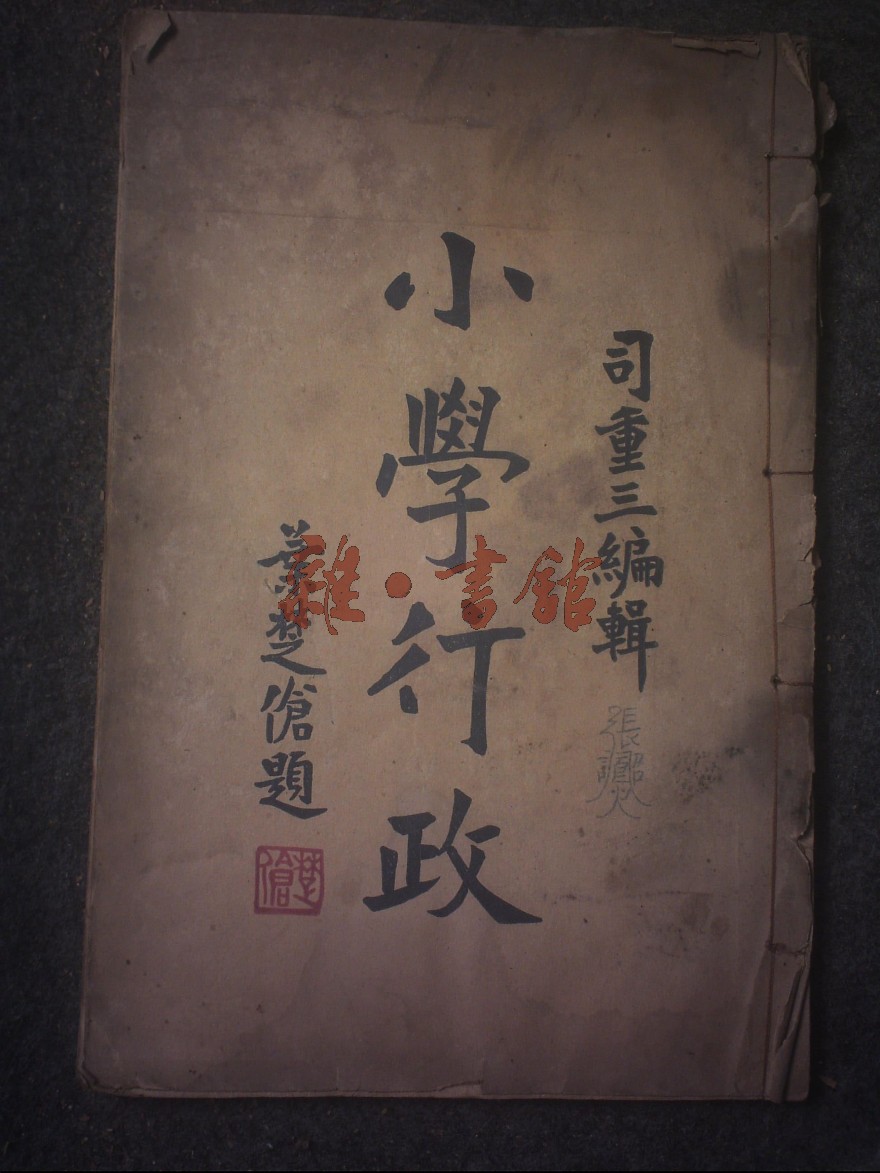 司重三編輯
張
小學行政
葉楚傖題
楚傖
雜·書館